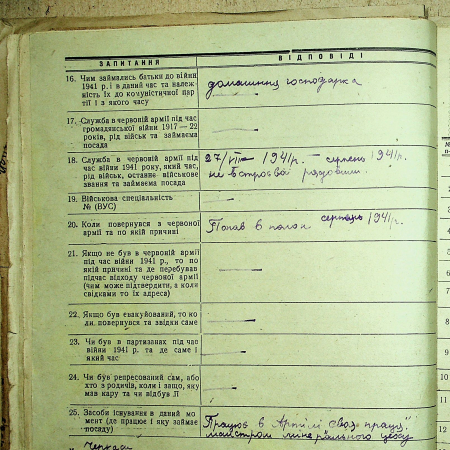 ЗАПИТАННЯ
ВІДПОВІДІ
16. Чим займались батьки до війни
1941 р. і в даний час та належ
ність їх до комуністичної пар
тії і з якого часу
домашния господарка
17. Служба в червоній армії під час
громадянської війни 1917—22
років, рід військ та займаема
посада
18. Служба в червоній армії під
час війни 1941 року, який час,
рід військ, останне військове
звання та займаема посада
27/VII — 1941р. — серпень 1941р.
не встроєвій рядовим.
19. Військова спеціальність
№ (ВУС)
20. Коли повернувся з червоної
армії та по якій причині
Попав в полон. серпень 1941р.
21. Якщо не був в червоній армії
під час війни 1941 р., то по
якій причині та де перебував
підчас відходу червоної армії
(чим може підтвердити, а коли
свідками то їх адреса)
22. Якщо був евакуйований, то ко
ли повернувся та звідки саме
23. Чи був в партизанах під час
війни 1941 р. та де саме і
який час
24. Чи був репресований сам, або
хто з родичів, коли і защо, яку
мав кару та чи відбув її
25. Засоби існування в даний мо
мент (де працює і яку займає
посаду)
Працює в Артілі
майстром цеху
Черкаси